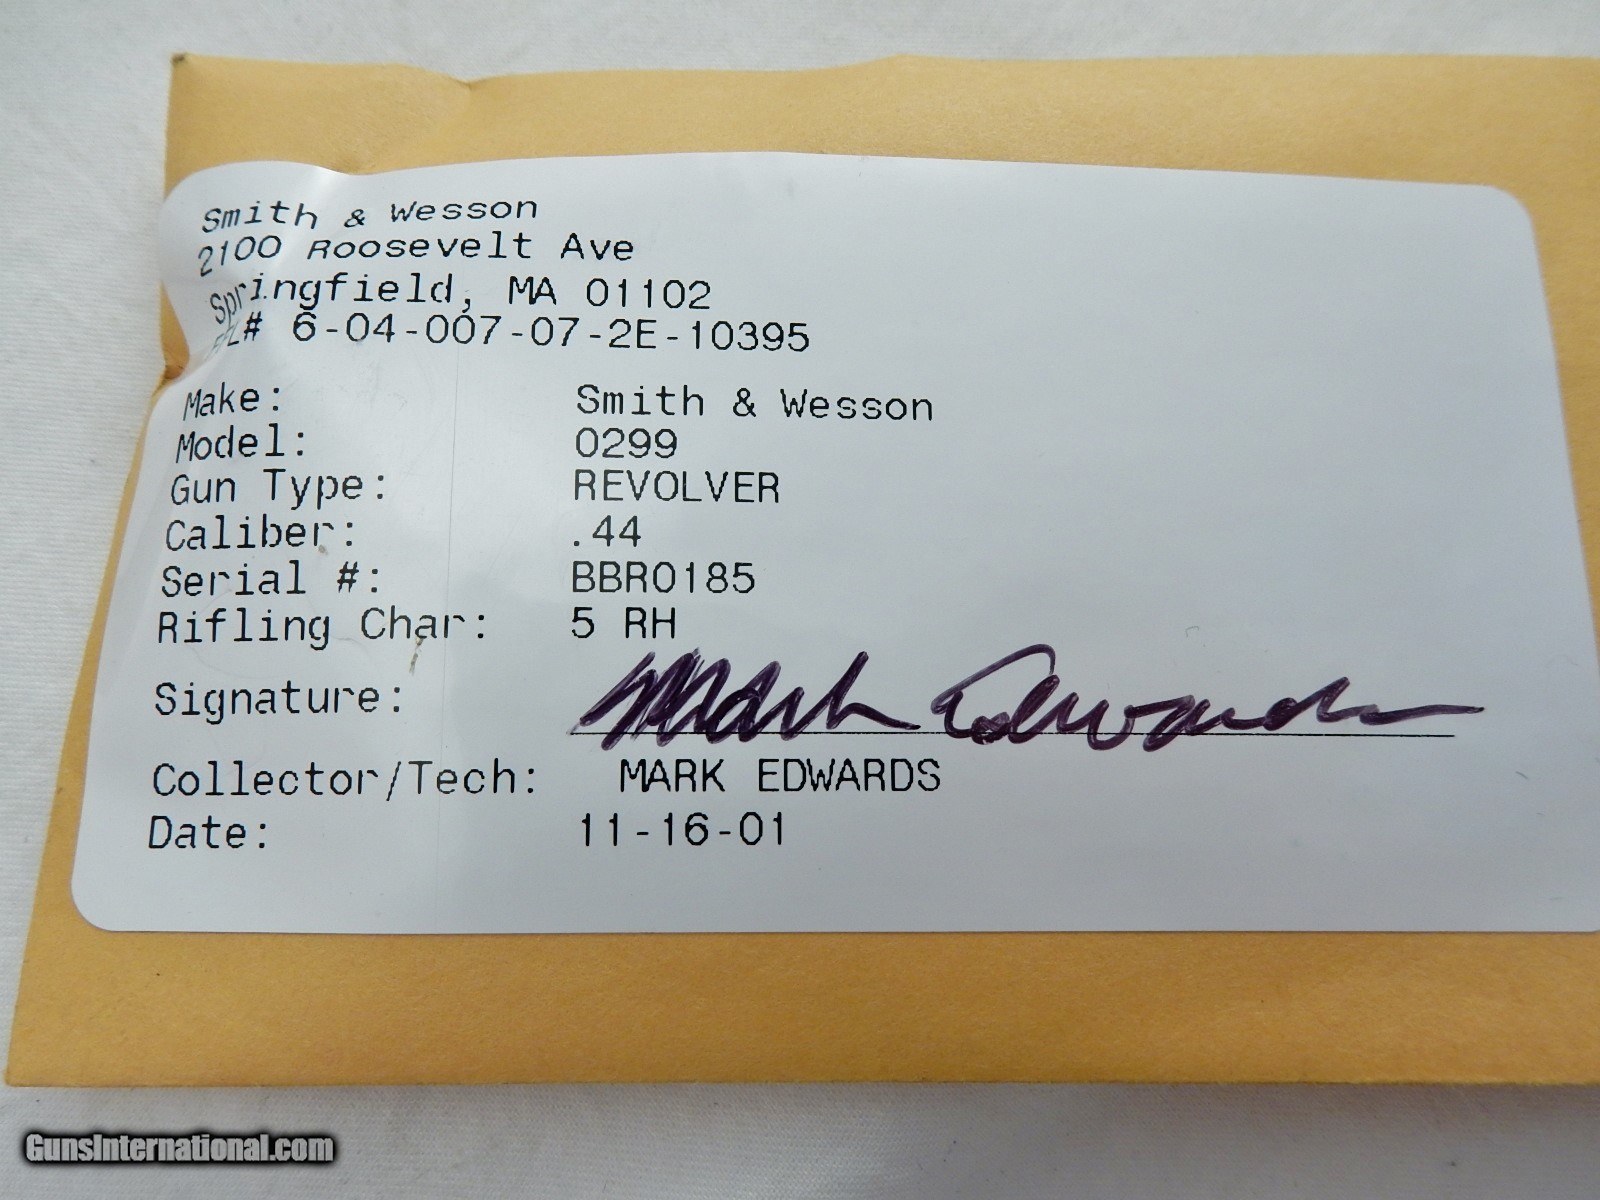 Smith & Wesson
2100 Roosevelt Ave
Springfield, MA 01102
FFL# 6-04-007-07-2E-10395
Make: Smith & Wesson
Model: 0299
Gun Type: REVOLVER
Caliber: .44
Serial #: BBR0185
Rifling Char: 5 RH
Signature: Mark Edwards
Collector/Tech: MARK EDWARDS
Date: 11-16-01
GunsInternational.com